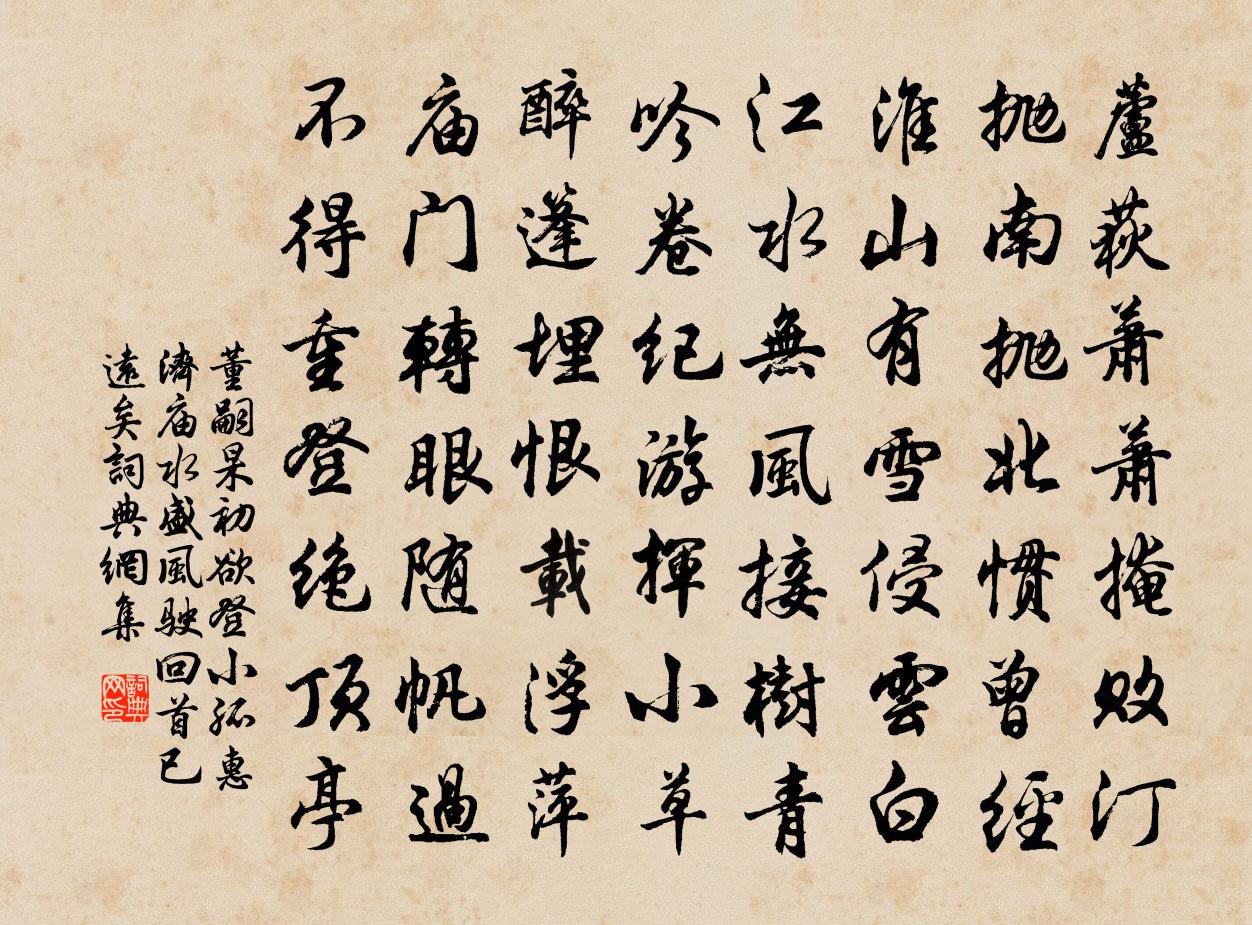 蘆荻蕭蕭掩败汀
抛南抛北惯曾經
淮山有雪侵雲白
江水無風接樹青
吟卷纪游揮小草
醉篷埋恨載浮萍
庙门轉眼随帆過
不得重登绝顶亭
董嗣杲初欲登小孤惠
濟庙水盛風駛回首已
遠矣詞典網集
詞典网印